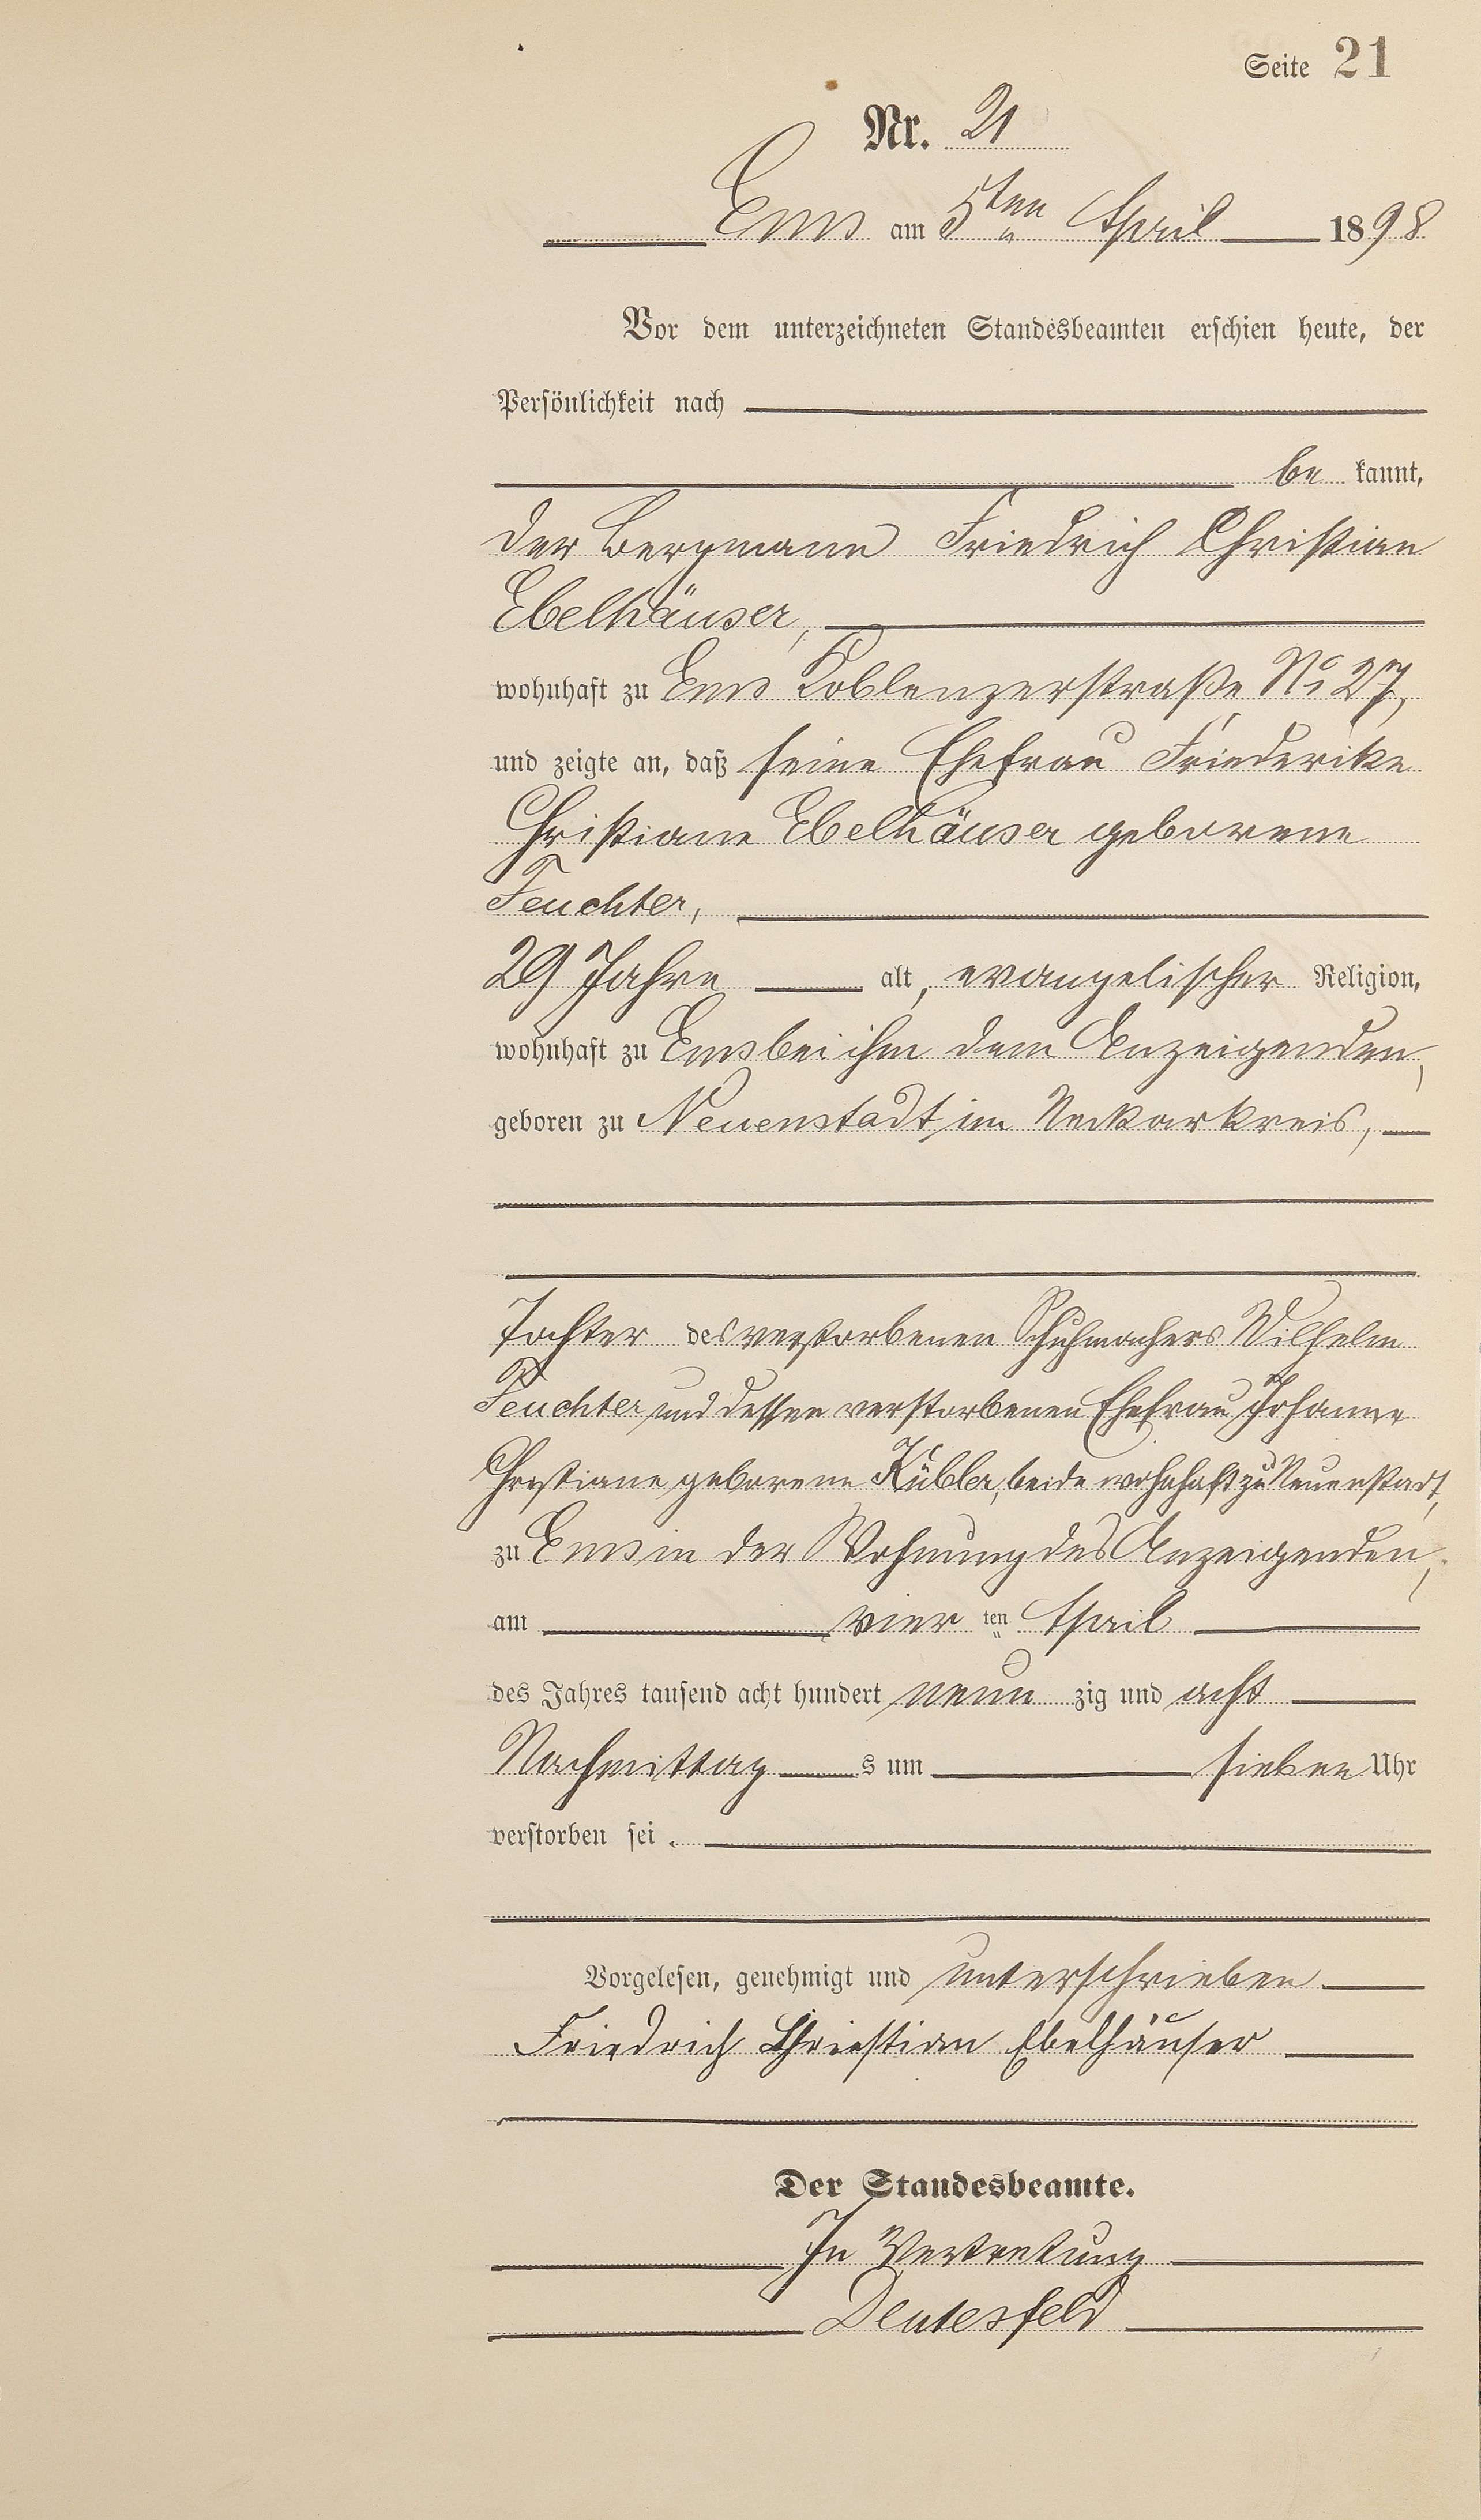 Seite 21
Nr. 21
Ems am 5ten April 1898
Vor dem unterzeichneten Standesbeamten erschien heute, der
Persönlichkeit nach
be kannt,
der Bergmann Friedrich Christian
Ebelhäuser,
wohnhaft zu Ems Coblenzerstraße No 27,
und zeigte an, daß seine Ehefrau Friederike
Christiane Ebelhäuser geborene
Feuchter,
29 Jahre alt, evangelischer Religion,
wohnhaft zu Ems bei ihm dem Anzeigenden,
geboren zu Neuenstadt im Neckarkreis,
Tochter des verstorbenen Schuhmachers Wilhelm
Feuchter und dessen verstorbenen Ehefrau Johanne
Christiane geborene Kübler, beide wohnhaft zu Neuenstadt,
zu Ems in der Wohnung des Anzeigenden,
am vier ten April
des Jahres tausend acht hundert neun zig und acht
Nachmittag s um sieben Uhr
verstorben sei.
Vorgelesen, genehmigt und unterschrieben
Friedrich Christian Ebelhäuser
Der Standesbeamte.
In Vertretung
Deutesfeld